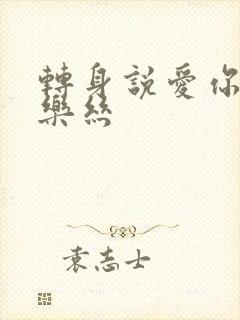 轉身説愛你
樂絲
袁志士